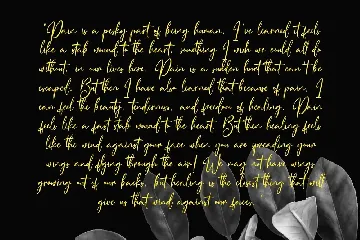 "Pain is a pesky part of being human, I've learned it feels
like a stab wound to the heart, something I wish we could all do
without, in our lives here. Pain is a sudden hurt that can't be
escaped. But then I have also learned that because of pain, I
can feel the beauty, tenderness, and freedom of healing. Pain
feels like a fast stab wound to the heart. But then healing feels
like the wind against your face when you are spreading your
wings and flying through the air! We may not have wings
growing out of our backs, but healing is the closest thing that will
give us that wind against our faces.